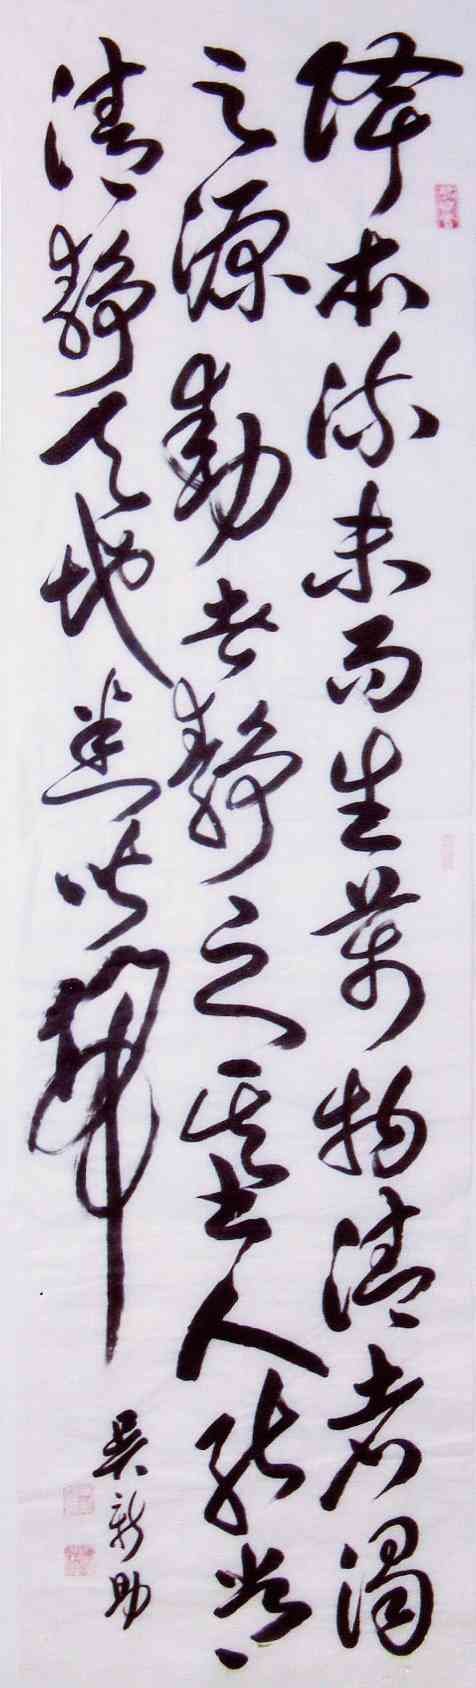 降本流末而生萬物清者濁
之源動者静之基人能常
清静天地悉皆歸
吳新助